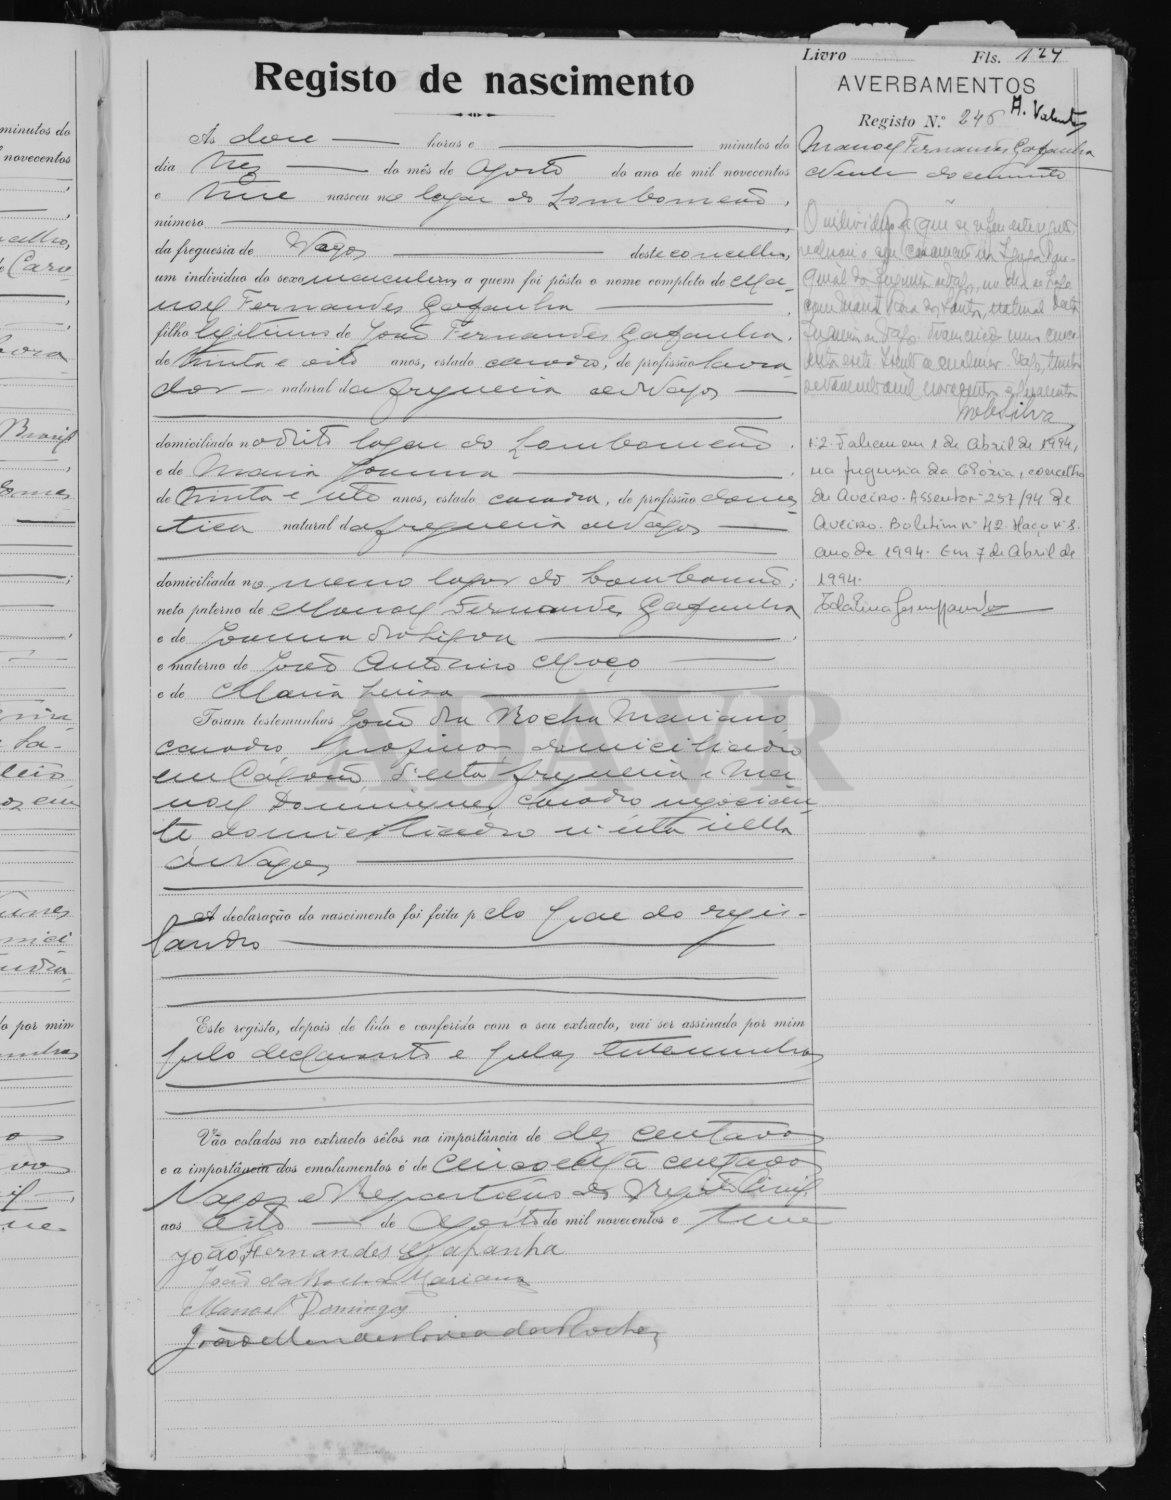 Livro Fls. 124
Registo de nascimento
AVERBAMENTOS
Registo N.º 246 A. Valente
Às doze horas e minutos do
dia trez do mês de Agosto do ano de mil novecentos
e treze nasceu no logar do Lombomeão,
número
da freguesia de Vagos deste concelho,
um indivíduo do sexo masculino a quem foi pôsto o nome completo de Ma-
noel Fernandes Gafanha
filho legitimo de João Fernandes Gafanha,
de trinta e oito anos, estado casado, de profissão lavra-
dor natural da freguesia de Vagos
domiciliado no dito logar do Lombomeão
e de Maria Joanna
de trinta e oito anos, estado casada, de profissão domes-
tica natural da freguesia de Vagos
domiciliada no mesmo logar do Lombomeão;
neto paterno de Manoel Fernandes Gafanha
e de Joanna
e materno de João Antonino Moço
e de Maria Luisa
Foram testemunhas João da Rocha Mariano
casado, professor, domiciliado
em Calvão, d'esta freguesia e Ma-
noel Domingues, casado negocian-
te domiciliado n'esta villa
de Vagos
A declaração do nascimento foi feita pelo pae do regis-
tando
Este registo, depois de lido e conferido com o seu extracto, vai ser assinado por mim
pelo declarante e pelas testemunhas
Vão colados no extracto sêlos na importância de dez centavos
e a importância dos emolumentos é de cincoenta centavos
Vagos e Repartição do Registo Civil
aos oito de Agosto de mil novecentos e treze
João Fernandes Gafanha
João da Rocha Mariano
Manoel Domingos
João Mendes Correa da Rocha
Manoel Fernandes Gafanha
O individuo a que se refere este registo
realizou o seu casamento na Igreja Paro-
quial da freguesia de Vagos, no dia
com Maria Rosa dos Santos, natural desta
freguesia de Vagos
mil novecentos e quarenta
Silva
N.º 2. Faleceu em 1 de Abril de 1994,
na freguesia da Glória, concelho
de Aveiro. Assento nº 257/94 de
Aveiro. Boletim nº 42. Maço nº 8.
ano de 1994. Em 7 de Abril de
1994.
ADAVR
minutos do
novecentos
por mim